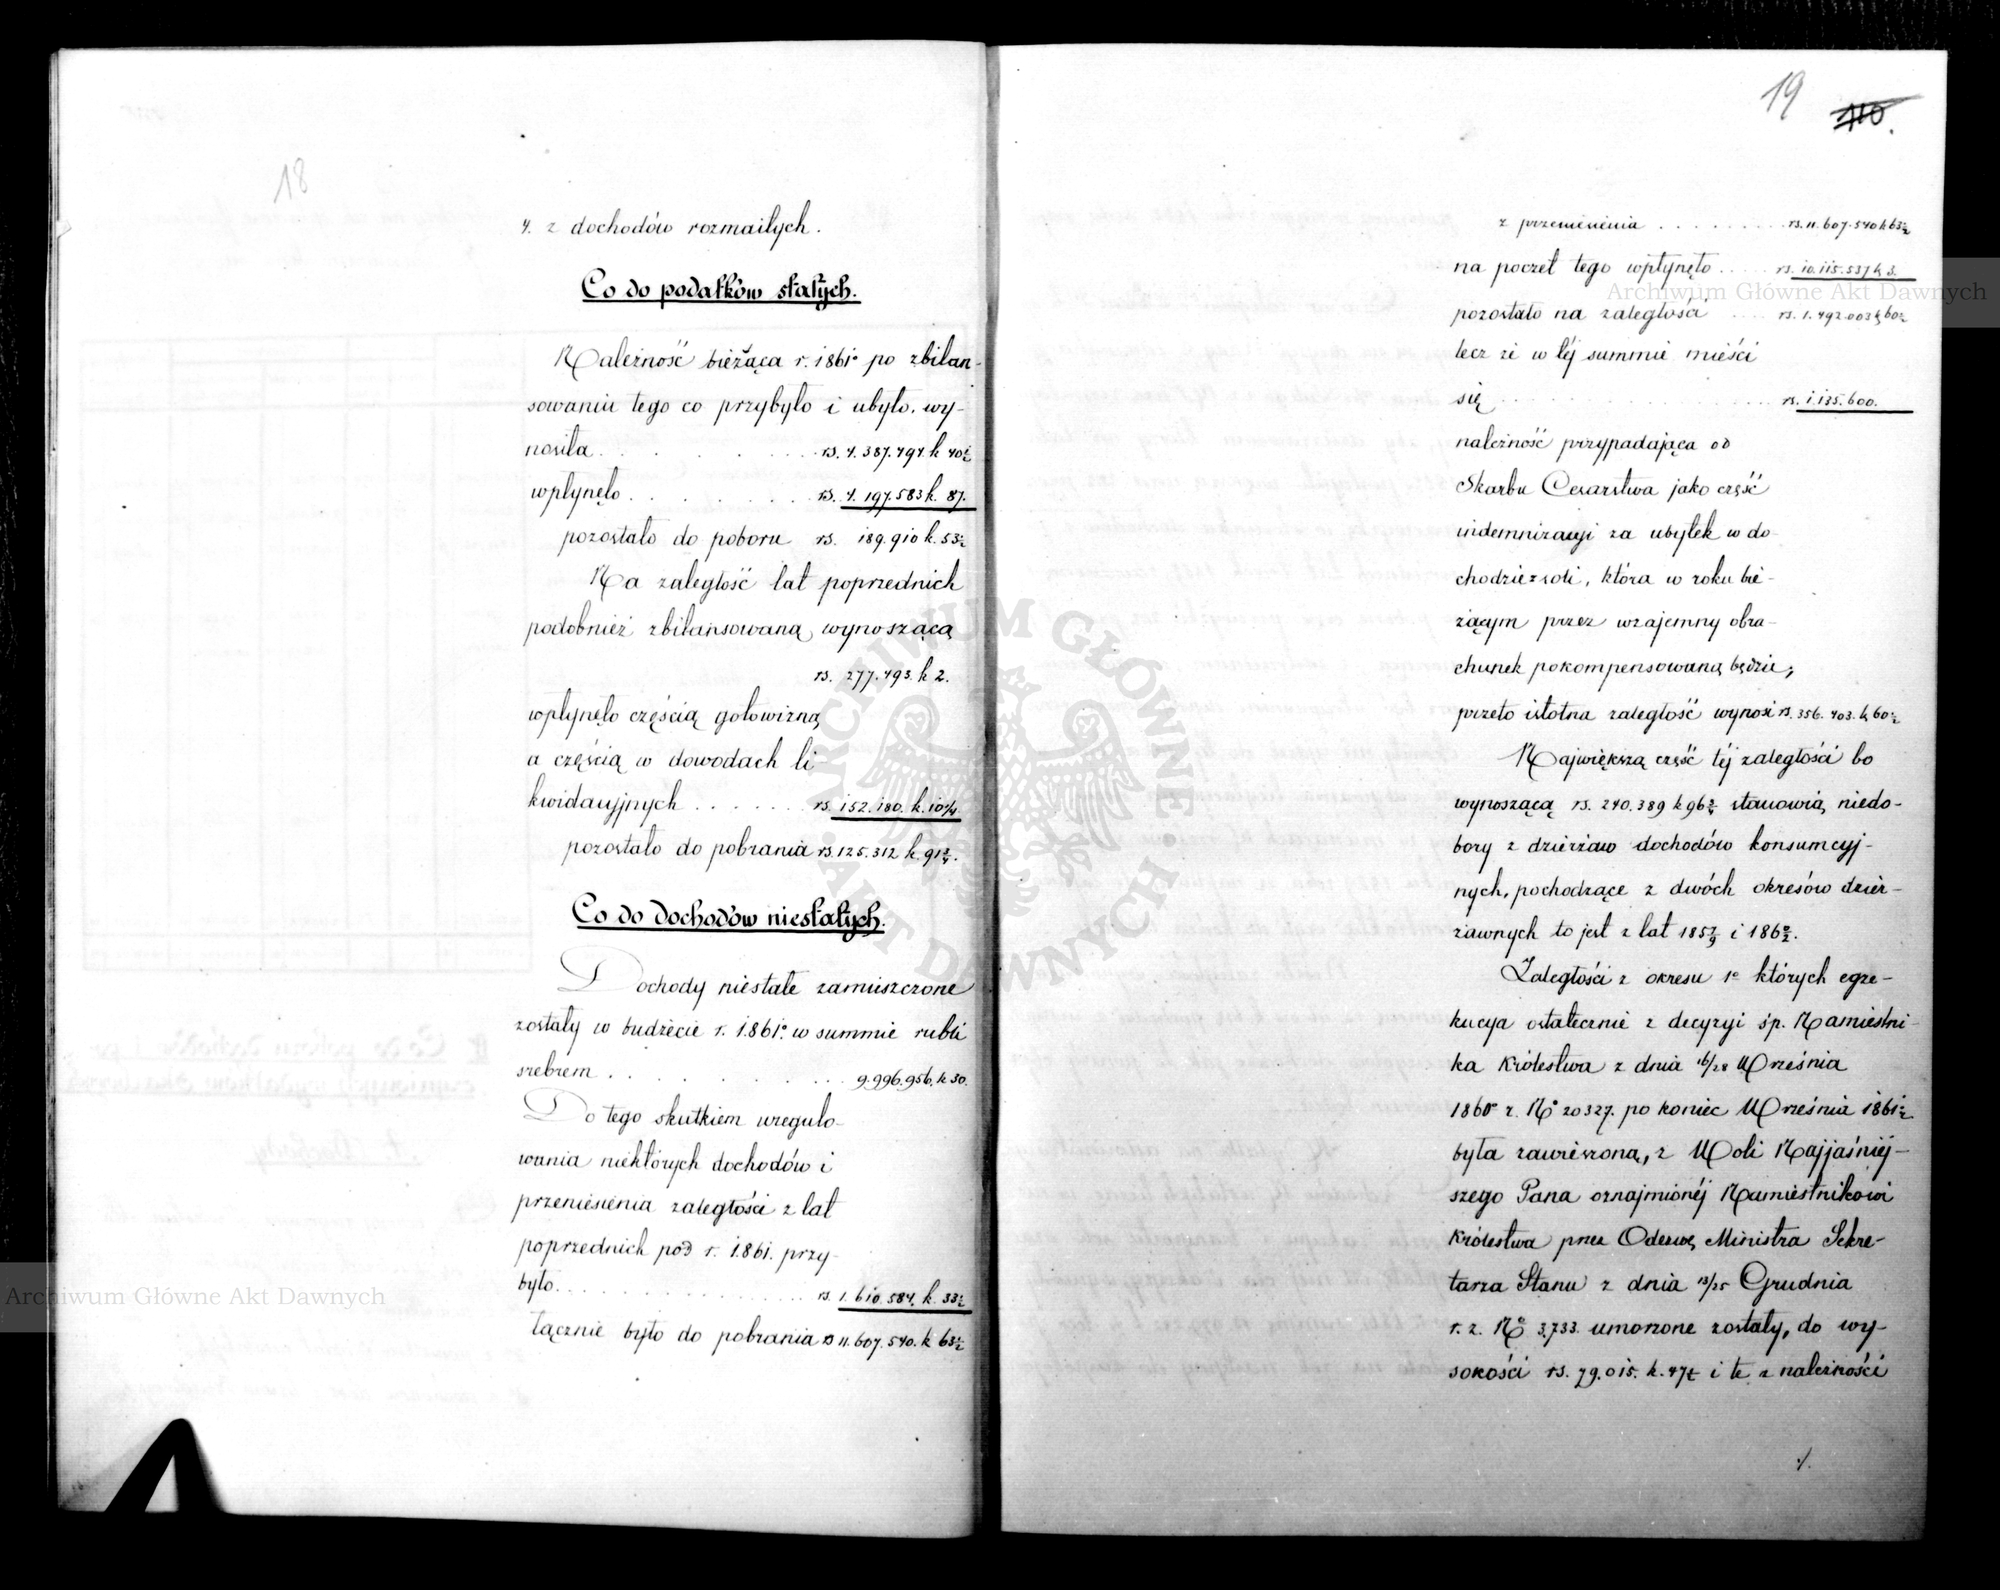 18
4. z dochodów rozmaitych.
Co do podatków stałych.
Należność bieżąca r. 1861º po zbilan-
sowaniu tego co przybyło i ubyło, wy-
nosiła . . . . . rs. 4.387.494 k 40½
wpłynęło . . . . . rs. 4.197.583 k. 87.
pozostało do poboru rs. 189.910 k. 53½
Na zaległość lat poprzednich
podobnież zbilansowaną, wynoszącą
rs. 277.493. k 2.
wpłynęło częścią gotowizną
a częścią w dowodach li-
kwidacyjnych . . . . . rs. 152.180. k. 10¼
pozostało do pobrania rs. 125.312 k. 91¾.
Co do dochodów niestałych.
Dochody niestałe zamieszczone
zostały w budżecie r. 1861º w summie rubli
srebrem . . . . . 9.996.956. k 30.
Do tego skutkiem uregulo-
wania niektórych dochodów i
przeniesienia zaległości z lat
poprzednich pod r. 1861. przy-
było . . . . . rs. 1.610.584. k. 33½
łącznie było do pobrania rs 11.607.540. k 63½
19
110.
z przeniesienia . . . . . rs. 11.607.540 k 63½
na poczet tego wpłynęło . . . . rs. 10.115.537 k 3.
pozostało na zaległości . . . . rs. 1.492.003 k 60½
lecz że w téj summie mieści
się . . . . . rs. 1.135.600.
należność przypadająca od
Skarbu Cesarstwa jako część
indemnizacyi za ubytek w do-
chodzie z soli, która w roku bie-
żącym przez wzajemny obra-
chunek pokompensowaną będzie,
przeto istotna zaległość wynosi rs. 356.403. k 60½
Największą część téj zaległości bo
wynoszącą rs. 240.389 k 96¾ stanowią niedo-
bory z dzierżaw dochodów konsumcyj-
nych, pochodzące z dwóch okresów dzier-
żawnych to jest z lat 1857/9 i 1860/2.
Zaległości z okresu 1º których egze-
kucya ostatecznie z decyzyi śp. Namiestni-
ka Królestwa z dnia 16/28 Września
1860 r. Nº 20327. po koniec Września 1861 r.
była zawieszoną, z Woli Najjaśniej-
szego Pana oznajmionéj Namiestnikowi
Królestwa przez Odezwę Ministra Sekre-
tarza Stanu z dnia 13/25 Grudnia
r. z. Nº 3,733. umorzone zostały, do wy-
sokości rs. 79.015. k. 47½ i te z należności
./.
Archiwum Główne Akt Dawnych
Archiwum Główne Akt Dawnych
ARCHIWUM GŁÓWNE AKT DAWNYCH